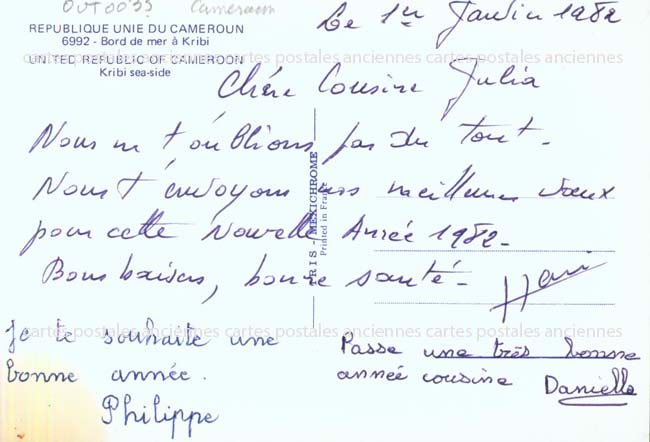 OUT0033 Cameroun
REPUBLIQUE UNIE DU CAMEROUN
6992 - Bord de mer à Kribi
UNITED REPUBLIC OF CAMEROON
Kribi sea-side
Le 1er Janvier 1982
cartes postales anciennes cartes postales anciennes cartes postales anciennes
Chère Cousine Julia
Nous ne t'oublions pas du tout.
Nous t'envoyons nos meilleurs vœux
pour cette Nouvelle Année 1982.
Bons baisers, bonne santé.
IRIS - MEXICHROME
Printed in France
cartes postales anciennes cartes postales anciennes cartes postales anciennes
Je te souhaite une
bonne année.
Philippe
Passe une très bonne
année cousine Danielle